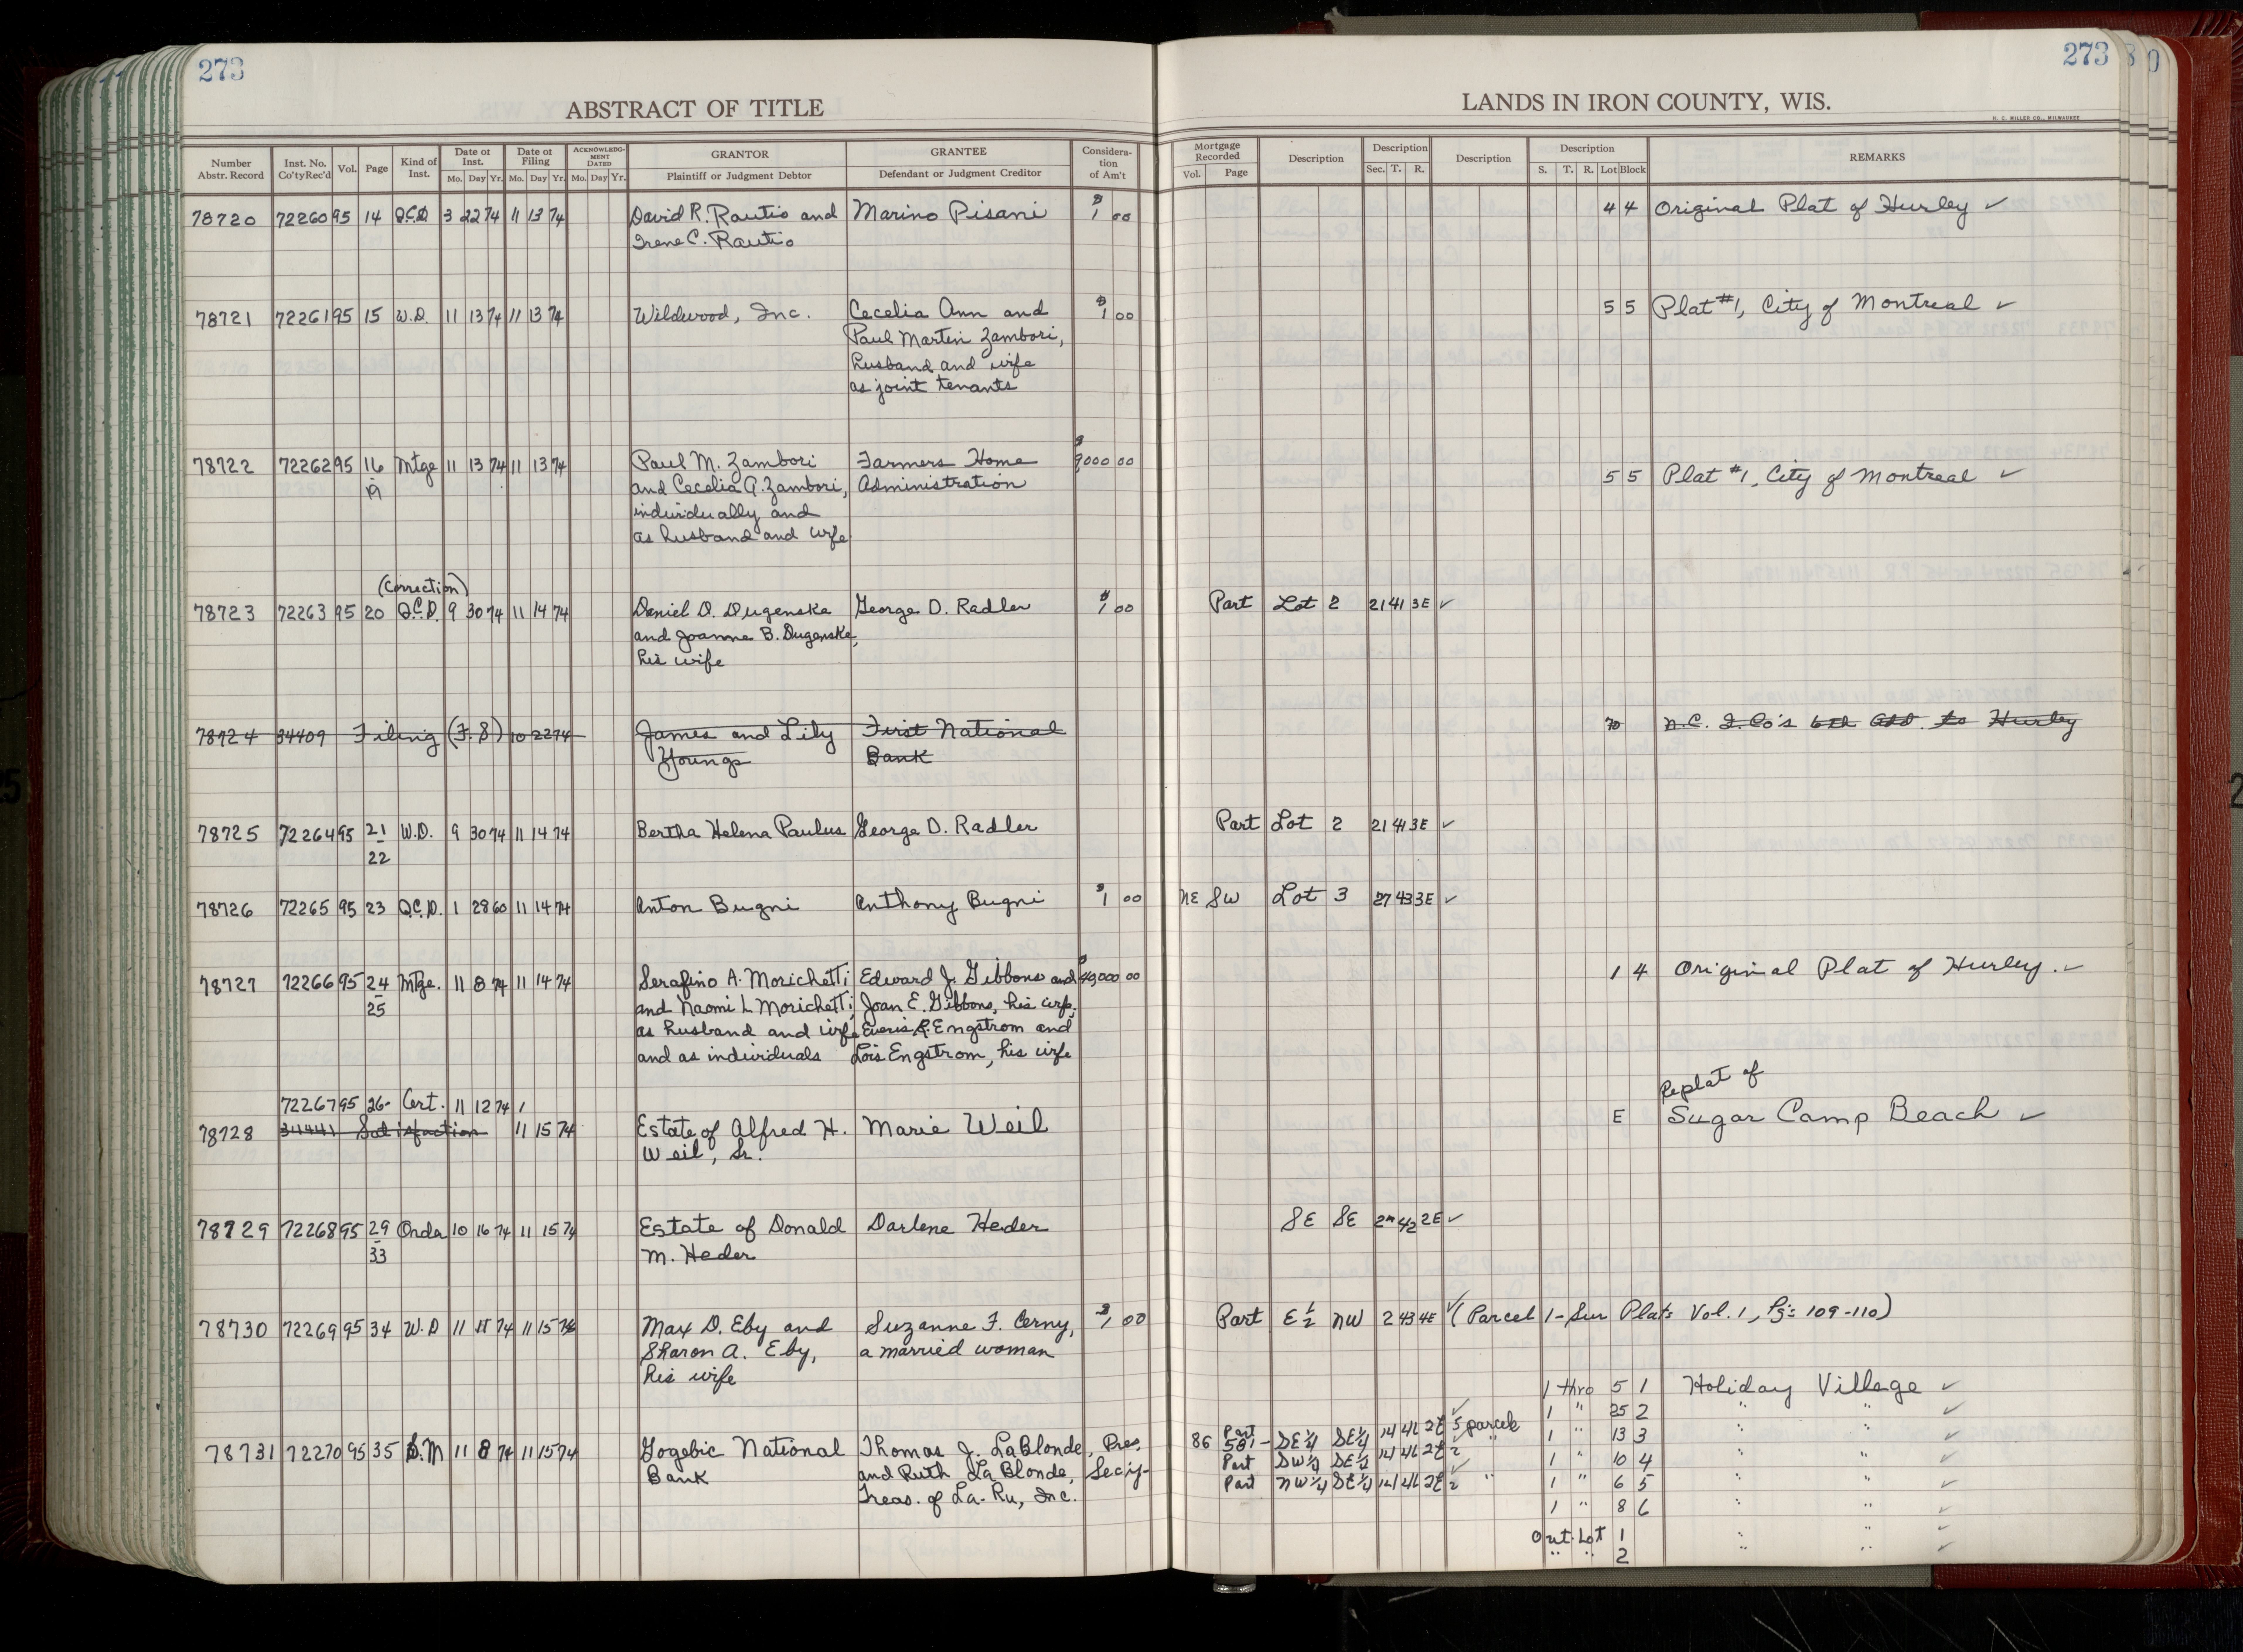 273
ABSTRACT OF TITLE
Number Abstr. Record Inst. No. Co'tyRec'd Vol. Page Kind of Inst. Date of Inst. Mo. Day Yr. Date of Filing Mo. Day Yr. ACKNOWLEDGMENT DATED Mo. Day Yr. GRANTOR Plaintiff or Judgment Debtor GRANTEE Defendant or Judgment Creditor Consideration of Am't
78720 72260 95 14 Q.C.D. 3 22 74 11 13 74 David R. Rautio and Marino Pisani $1 00
Irene C. Rautio
78721 72261 95 15 W.D. 11 13 74 11 13 74 Wildwood, Inc. Cecelia Ann and $1 00
Paul Martin Zambori,
husband and wife
as joint tenants
78722 72262 95 16 Mtge 11 13 74 11 13 74 Paul M. Zambori Farmers Home $9000 00
19 and Cecelia A. Zambori, Administration
individually and
as husband and wife
(Correction)
78723 72263 95 20 Q.C.D. 9 30 74 11 14 74 Daniel D. Dugenske George D. Radler $1 00
and Joanne B. Dugenske,
his wife
78724 34409 Filing (F.S) 10 22 74 James and Lily First National
Youngs Bank
78725 72264 95 21 W.D. 9 30 74 11 14 74 Bertha Helena Paulus George D. Radler
22
78726 72265 95 23 Q.C.D. 1 28 60 11 14 74 Anton Bugni Anthony Bugni $1 00
78727 72266 95 24 Mtge. 11 8 74 11 14 74 Serafino A. Morichetti Edward J. Gibbons and $49,000 00
25 and Naomi L Morichetti, Joan E. Gibbons, his wife,
as husband and wife Everis R. Engstrom and
and as individuals Lois Engstrom, his wife
72267 95 26- Cert. 11 12 74
78728 34441 Satisfaction 11 15 74 Estate of Alfred H. Marie Weil
Weil, Sr.
78729 72268 95 29 Order 10 16 74 11 15 74 Estate of Donald Darlene Heder
33 M. Heder
78730 72269 95 34 W.D 11 15 74 11 15 74 Max D. Eby and Suzanne F. Cerny, $1 00
Sharon A. Eby, a married woman
his wife
78731 72270 95 35 S.M 11 8 74 11 15 74 Gogebic National Thomas J. LaBlonde, Pres.
Bank and Ruth LaBlonde, Sec'y-
Treas. of La-Ru, Inc.
273
LANDS IN IRON COUNTY, WIS.
H. C. MILLER CO., MILWAUKEE
Mortgage Recorded Vol. Page Description Description Sec. T. R. Description Description S. T. R. Lot Block REMARKS
4 4 Original Plat of Hurley ✓
5 5 Plat #1, City of Montreal ✓
5 5 Plat #1, City of Montreal ✓
Part Lot 2 21 41 3E ✓
70 N.C. I. Co's 6th Add. to Hurley
Part Lot 2 21 41 3E ✓
NE SW Lot 3 27 43 3E ✓
1 4 Original Plat of Hurley. ✓
Replat of
E Sugar Camp Beach ✓
SE SE 42 2E ✓
Part E½ NW 2 43 4E ✓ (Parcel 1-Sur Plats Vol. 1, Pgs 109-110)
1 thro 5 1 Holiday Village ✓
1 " 25 2 " " ✓
86 Part 581- SE¼ SE¼ 14 41 2E 5 parcels 1 " 13 3 " " ✓
Part SW¼ SE¼ 14 41 2E 2 " 1 " 10 4 " " ✓
Part NW¼ SE¼ 14 41 2E 2 " 1 " 6 5 " " ✓
1 " 8 6 " " ✓
Out Lot 1 " " ✓
" " 2 " " ✓